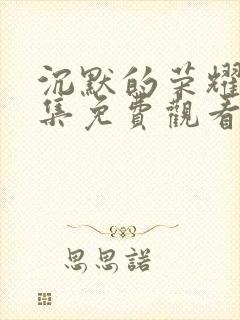 沉默的荣耀
集免費觀看
思思諾